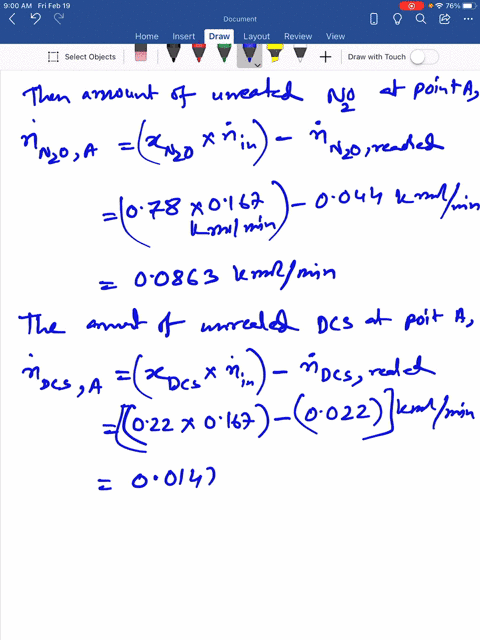 9:00 AM Fri Feb 19
76%
Document
Home Insert Draw Layout Review View
Select Objects
Draw with Touch
Then amount of unreated N2O at point A,
ṅN2O, A = (xN2O × ṅin) − ṅN2O, reacted
= (0.78 × 0.167 kmol/min) − 0.044 kmol/min
= 0.0863 kmol/min
The amount of unreacted DCS at poit A,
ṅDCS, A = (xDCS × ṅin) − ṅDCS, reacted
= [(0.22 × 0.167) − (0.022)] kmol/min
= 0.0147